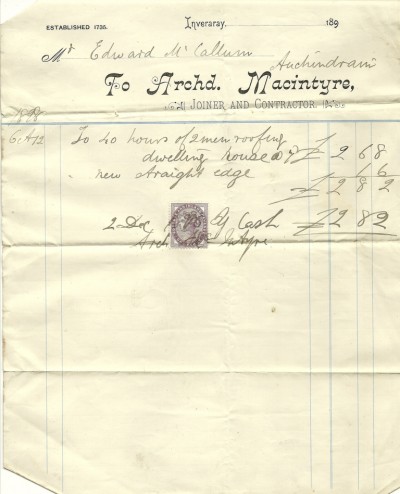 ESTABLISHED 1735.
Inveraray, 189
Mr Edward McCallum
Auchindrain
To Archd. Macintyre,
JOINER AND CONTRACTOR.
1898
To 40 hours of 2 men roofing
dwelling house @ 7 £ 2 6 8
" new straight edge 1 6
£ 2 8 2
2 Dec By Cash £ 2 8 2
Arch